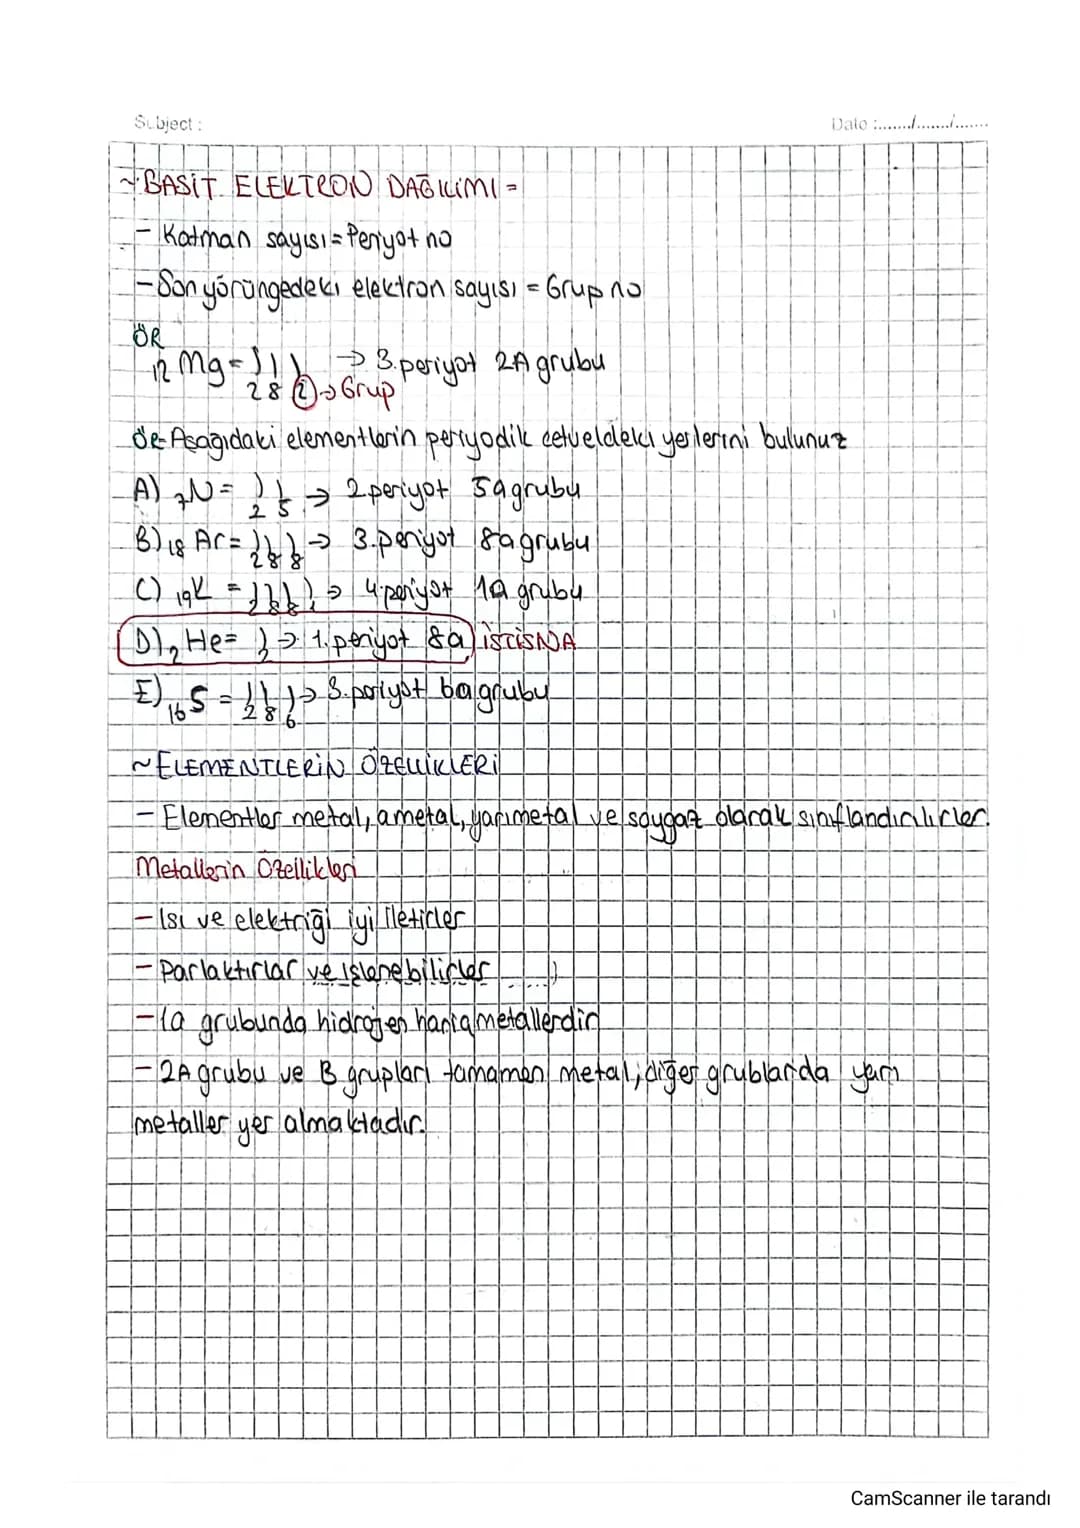 Subject :
Date :......./......./.......
~BASİT ELEKTRON DAĞILIMI =
- Katman sayısı = Periyot no
- Son yörüngedeki elektron sayısı = Grup no
ÖR
12 Mg = ) ) ) → 3.periyot 2A grubu
2 8 2 → Grup
ÖR- Aşağıdaki elementlerin periyodik cetveldeki yerlerini bulunuz
A) 7N = ) ) → 2.periyot 5a grubu
2 5
B) 18 Ar = ) ) ) → 3.periyot 8a grubu
2 8 8
C) 19K = ) ) ) ) → 4.periyot 1a grubu
2 8 8 1
D) 2 He = ) → 1.periyot 8a İSTİSNA
2
E) 16 S = ) ) ) → 3.periyot 6a grubu
2 8 6
~ELEMENTLERİN ÖZELLİKLERİ
- Elementler metal, ametal, yarımetal ve soygaz olarak sınıflandırılırler.
Metallerin Özellikleri
- Isı ve elektriği iyi iletirler
- Parlaktırlar ve işlenebilirler
- 1a grubunda hidrojen hariç metallerdir
- 2A grubu ve B grupları tamamen metal, diğer grublarda yarı
metaller yer almaktadır.
CamScanner ile tarandı